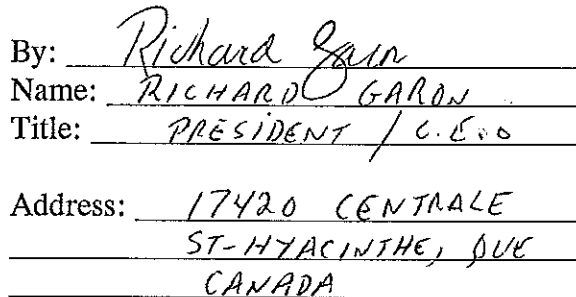 By: Richard Garon
Name: RICHARD GARON
Title: PRESIDENT / C.E.O
Address: 17420 CENTRALE
ST-HYACINTHE, QUE
CANADA